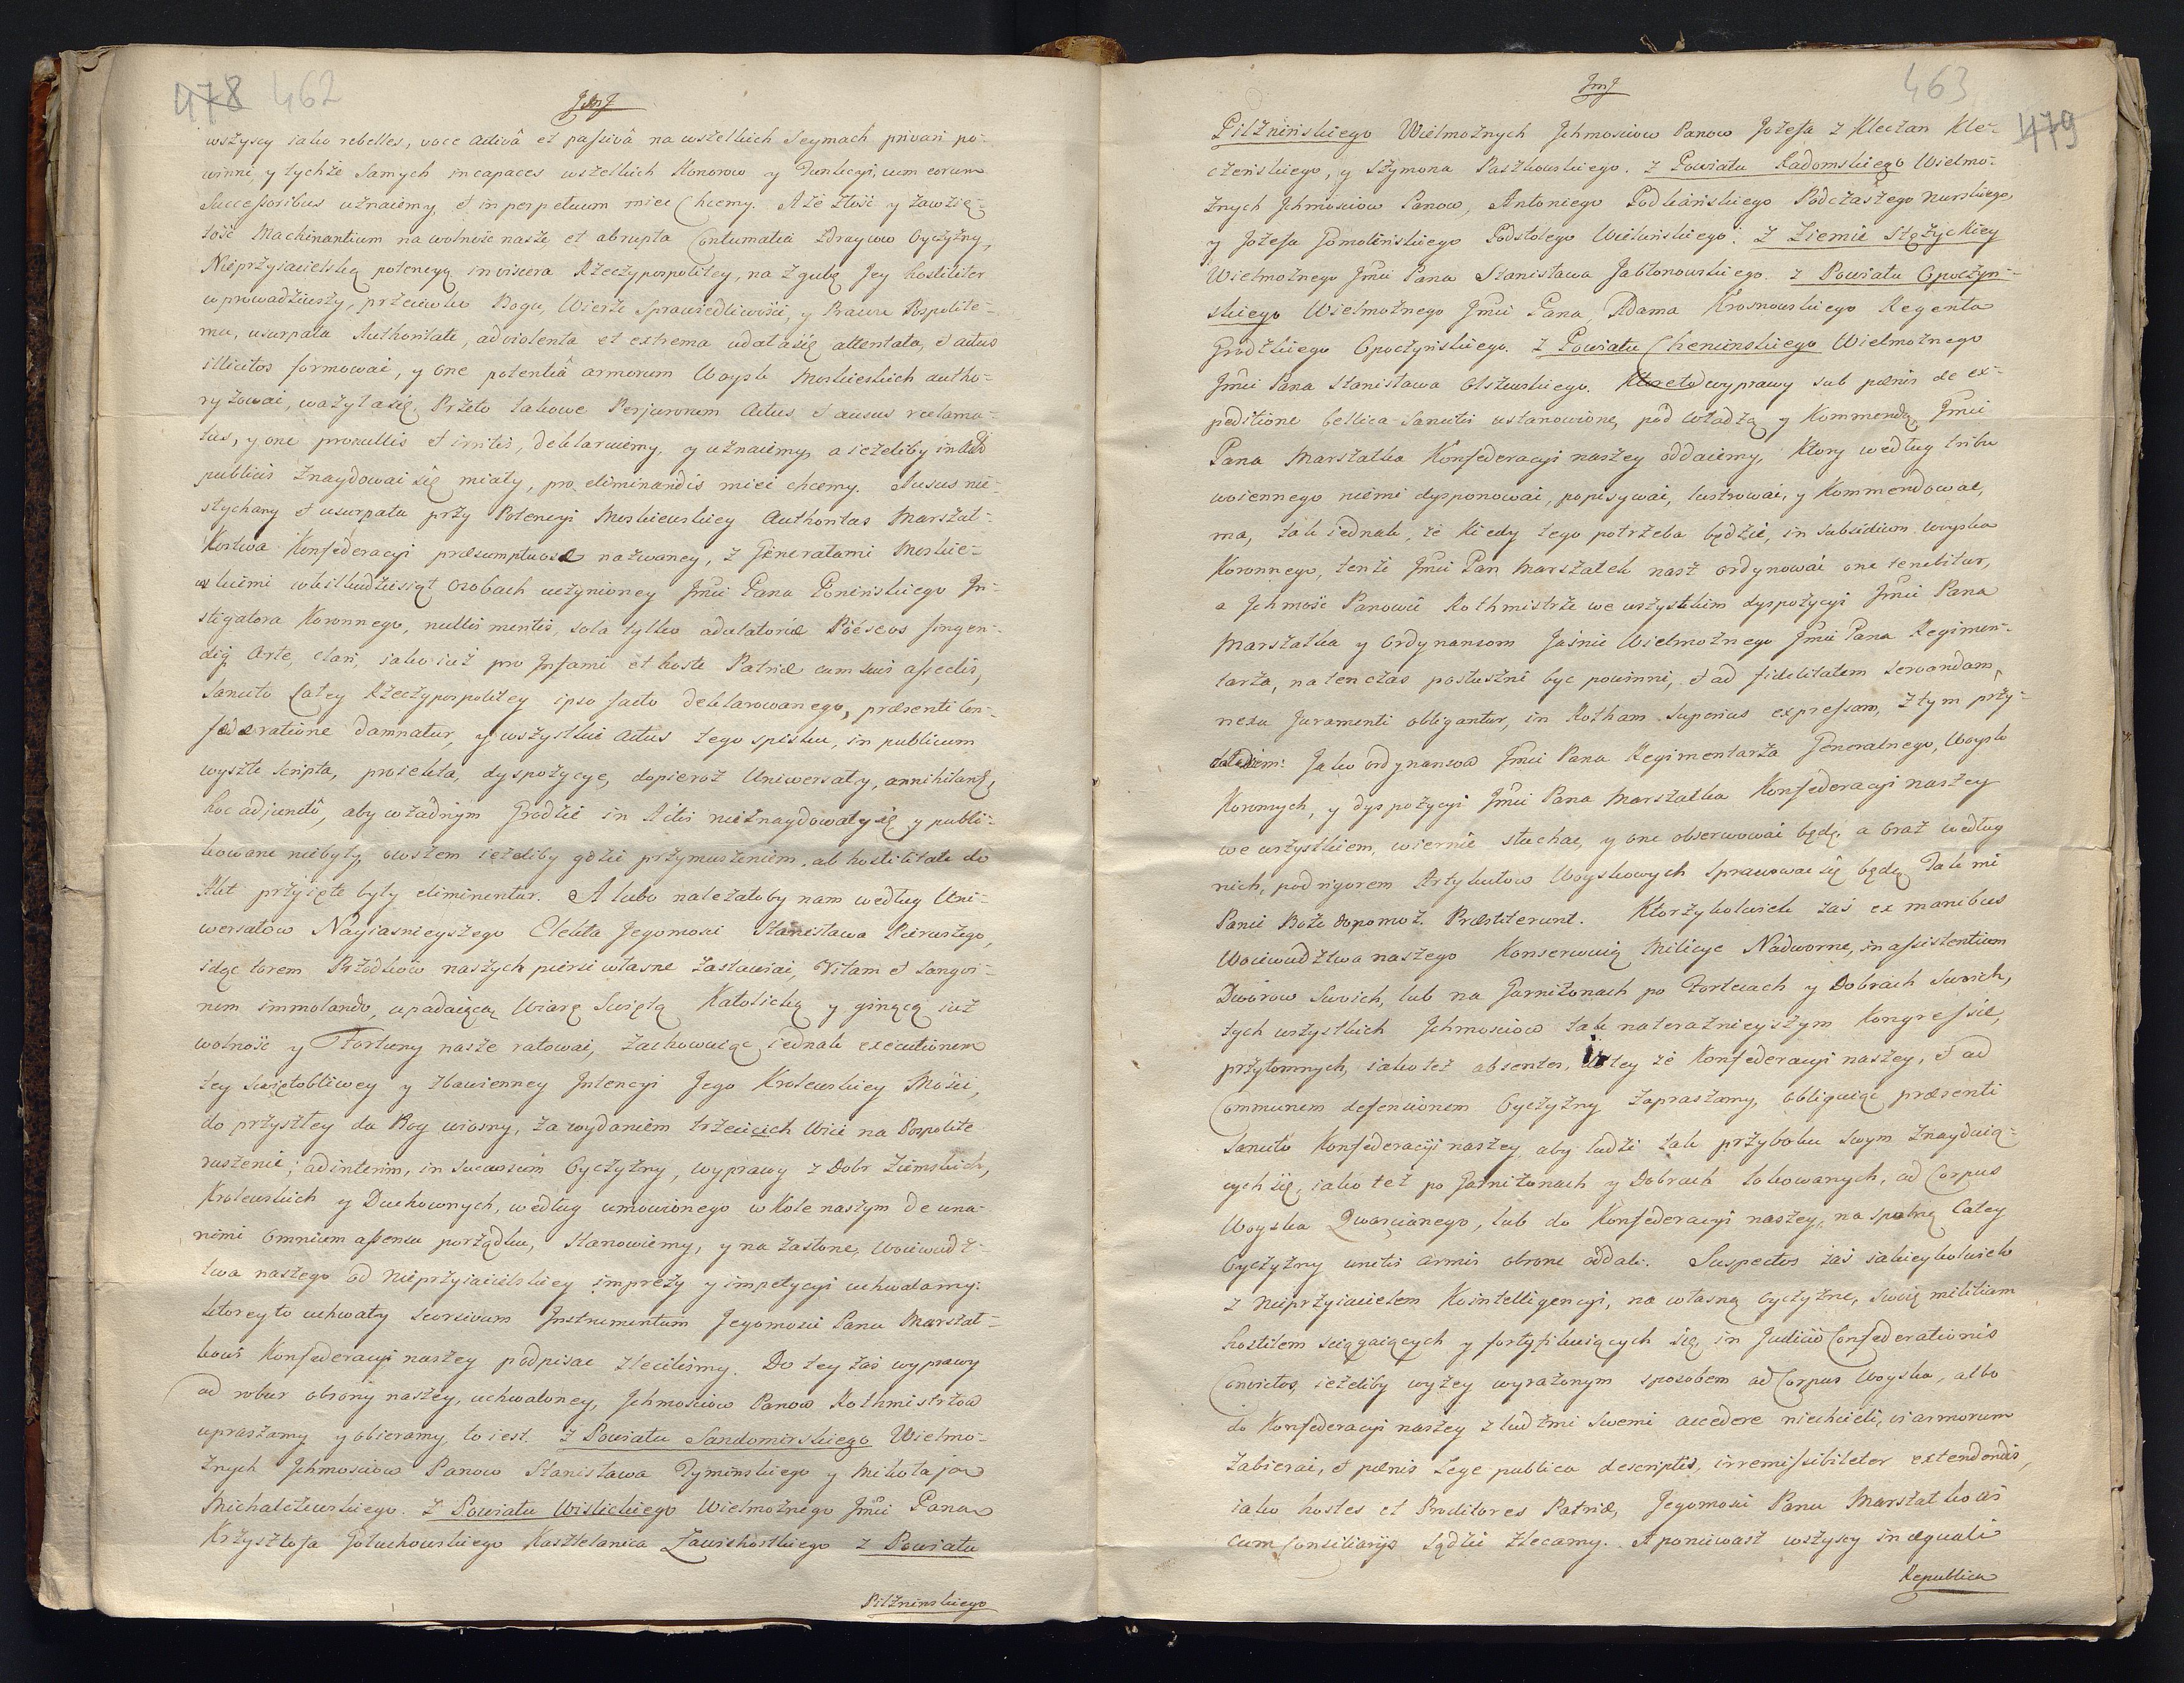 478 462
JMJ
wszyscy iako rebelles, voce activâ et passivâ na wszelkich Seymach privari po-
winni, y tychże samych incapaces wszelkich Honorow y Funkcyi, cum eorum
Successoribus uznaiemy, et in perpetuum mieć chcemy. A że złość y zawzię-
tość Machinantium na wolność naszę et abrupta Contumatia zdraycow Oyczyzny,
Nieprzyiacielską potencyą in viscera Rzeczypospolitey, na zgubę Jey hostiliter
wprowadziwszy, przeciwko Bogu, Wierze Sprawiedliwości, y Prawu Pospolite-
mu, usurpata Authoritate, ad violenta et extrema udała się attentata, et actus
illicitos formować, y one potentiâ armorum Woysk Moskieskich autho-
ryzować, ważyła się. Przeto takowe Perjurorum Actus, et ausus reclama-
tus, y one pro nullis et irritis, deklaruiemy, y uznaiemy, a ieżeliby in Actis
publicis znaydować się miały, pro eliminandis mieć chcemy. Ausus nie-
słychany et usurpata przy Potencyi Moskiewskiey Authoritas Marszał-
kostwa Konfederacyi præsumptuosæ nazwaney, z Generałami Moskie-
wskiemi w kilkudziesiąt osobach uczynioney Jmći Pana Ponińskiego In-
stigatora Koronnego, nullis mentis, sola tylko adulatoriæ Pöéseos fingen-
di Arte, clari, iako iuż pro Infami et hoste Patriæ cum suis asseclis,
Sancito Całey Rzeczypospolitey ipso facto deklarowanego, præsenti Con-
fœderatione damnatur, y wszystkie Actus tego spisku, in publicum
wyszłe scripta, proiekta, dyspozycye, dopieroż Uniwersały, annihilant,
hoc adjuncto, aby w żadnym Grodzie in Actis nieznaydowały się y publi-
kowane niebyły, owszem ieżeliby gdzie przymuszeniem, ab hostilitate do
Akt przyięte były eliminentur. A lubo należałoby nam według Uni-
wersałow Nayiasnieyszego Elekta Jegomości Stanisława Pierwszego,
idąc torem Przodkow naszych piersi własne zastawiać, Vitam et sangvi-
nem immolando, upadaiącą Wiarę Swiętą Katolicką y ginącą iuż
wolność y Fortuny nasze ratować, zachowuiąc iednak executionem
tey swiętobliwey y zbawienney Intencyi Jego Krolewskiey Mości,
do przyszłey da Bog wiosny, za wydaniem trzecich Wici na Pospolite
ruszenie; ad interim, in succursum Oyczyzny, wyprawy z Dobr Ziemskich,
Krolewskich y Duchownych, według umowionego w Kole naszym de una-
nimi Omnium assensu porządku, stanowiemy, y na zasłonę, Woiewodz-
twa naszego od nieprzyiacielskiey imprezy y impetycyi uchwalamy:
ktorey to uchwały seorsivum Instrumentum Jegomości Panu Marszał-
kowi Konfederacyi naszey podpisać zleciliśmy. Do tey zaś wyprawy
ad robur obrony naszey, uchwaloney, Jchmościow Panow Rothmistrzow
upraszamy y obieramy, to iest. Z Powiatu Sandomirskiego Wielmo-
żnych Jchmościow Panow Stanisława Dyminskiego y Mikołaja
Michalczewskiego. Z Powiatu Wislickiego Wielmożnego Jmći Pana
Krzysztofa Gołuchowskiego Kasztelanica Zawichostkiego Z Powiatu
Pilznińskiego
JmJ
463
479
Pilznińskiego Wielmożnych Jchmościow Panow Jozefa z Kleczan Kle-
czeńskiego, y Szymona Paszkowskiego. Z Powiatu Radomskiego Wielmo-
żnych Jchmościow Panow, Antoniego Podkańskiego Podczaszego Nurskiego,
y Jozefa Gomolińskiego Podstolego Wieluńskiego. Z Ziemie Stężyckiey
Wielmożnego Jmći Pana Stanisława Jabłonowskiego. z Powiatu Opoczyn-
skiego Wielmożnego Jmći Pana, Adama Krosnowskiego Regenta
Grodzkiego Opoczyńskiego. Z Powiatu Chencinskiego Wielmożnego
Jmći Pana Stanisława Olszewskiego. Które to wyprawy sub pœnis de ex-
peditione bellica Sancitis ustanowione, pod władzą y Kommendą Jmći
Pana Marszałka Konfederacyi naszey oddaiemy, Ktory według tribu
woiennego niemi dysponować, popisywać, lustrować, y Kommendować,
ma, tak iednak, że kiedy tego potrzeba będzie, in subsidium woyska
Koronnego, tenże Jmći Pan Marszałek nasz ordynować one tenebitur,
a Jchmość Panowie Rothmistrze we wszystkim dyspozycyi Jmći Pana
Marszałka y Ordynansom Jaśnie Wielmożnego Jmći Pana Regimen-
tarza, na ten czas posłuszni być powinni, et ad fidelitatem servandam
nexu Juramenti obligantur, in Rotham superius expressam, z tym przy-
datkiem: Jako ordynansow Jmći Pana Regimentarza Generalnego, Woysk
Koronnych, y dyspozycyi Jmći Pana Marszałka Konfederacyi naszey
we wszystkiem, wiernie słuchać, y one obserwować będę, a oraz według
nich, pod rigorem Artykułow Woyskowych sprawować się będę. Tak mi
Panie Boże dopomoż. Præstiterunt. Ktorzykolwiek zaś ex manibus
Woiewodztwa naszego Konserwuią Milicye Nadworne, in assistentiam
Dworow swoich, lub na Garnizonach po Fortecach y Dobrach swoich,
tych wszystkich Jchmościow tak na teraznieyszym Kongressie,
przytomnych, iako też absentes, do tey że Konfederacyi naszey, et ad
Communem defensionem Oyczyzny zapraszamy, obliguiąc præsenti
Sancito Konfederacyi naszey, aby ludzi tak przy boku swym znayduią-
cych się, iako też po Garnizonach y Dobrach lokowanych, ad Corpus
Woyska Qwarcianego, lub do Konfederacyi naszey, na spolną Całey
Oyczyzny unitis armis obronę oddali. Suspectos zaś iakieykolwiek
z nieprzyiacielem Kointelligencyi, na własną Oyczyznę, swoię militiam
hostilem sciągaiących y fortyfikuiących się, in Judicio Confœderationis
Convictos, ieżeliby wyżey wyrażonym sposobem ad Corpus Woyska, albo
do Konfederacyi naszey z ludźmi swemi accedere niechcieli, vi armorum
zabierać, et pœnis Lege publica descriptis, irremissibiliter extendendis,
iako hostes et Proditores Patriæ, Jegomości Panu Marszałkowi
cum Consiliarijs sądzić zlecamy. A ponieważ wszyscy in æquali
Republica